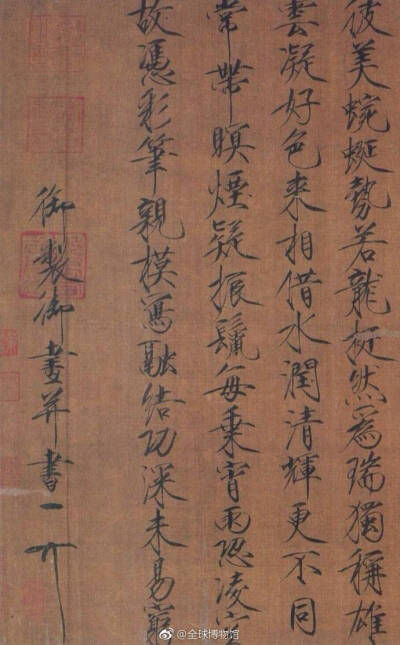 彼美蜿蜒勢若龍挺然為瑞獨稱雄
雲凝好色来相借水潤清輝更不同
常帶暝煙疑振鬣每乘宵雨恐凌空
故憑彩筆親模寫融結功深未易窮
御製御畫并書
@全球博物馆